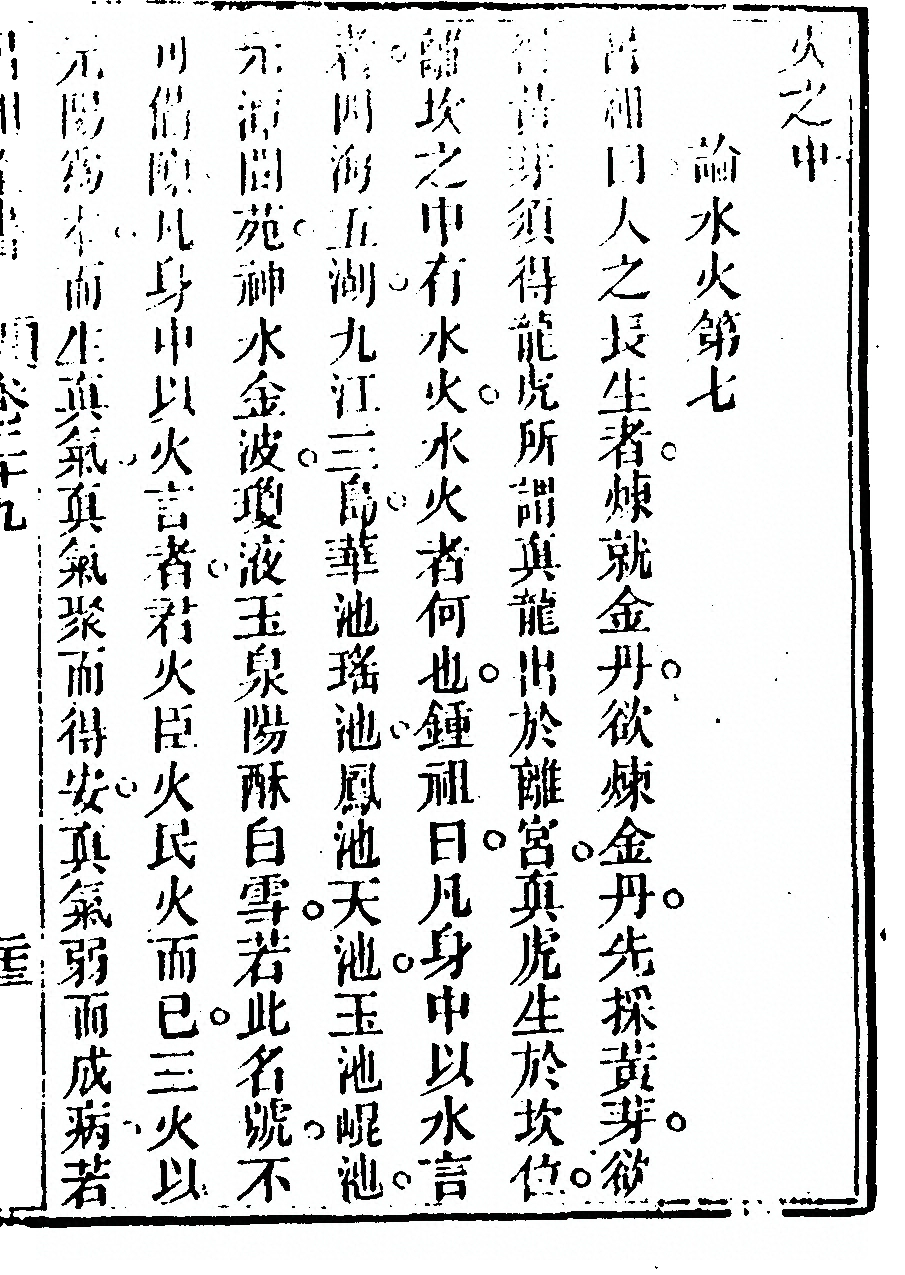 火之中
論水火第七
呂祖曰人之長生者煉就金丹欲煉金丹先採黃芽欲
得黃芽須得龍虎所謂真龍出於離宮真虎生於坎位
離坎之中有水火水火者何也鍾祖曰凡身中以水言
者四海五湖九江三島華池瑤池鳳池天池玉池崐池
元潭閬苑神水金波瓊液玉泉陽酥白雪若此名號不
可備陳凡身中以火言者君火臣火民火而已三火以
元陽為本而生真氣真氣聚而得安真氣弱而成病若